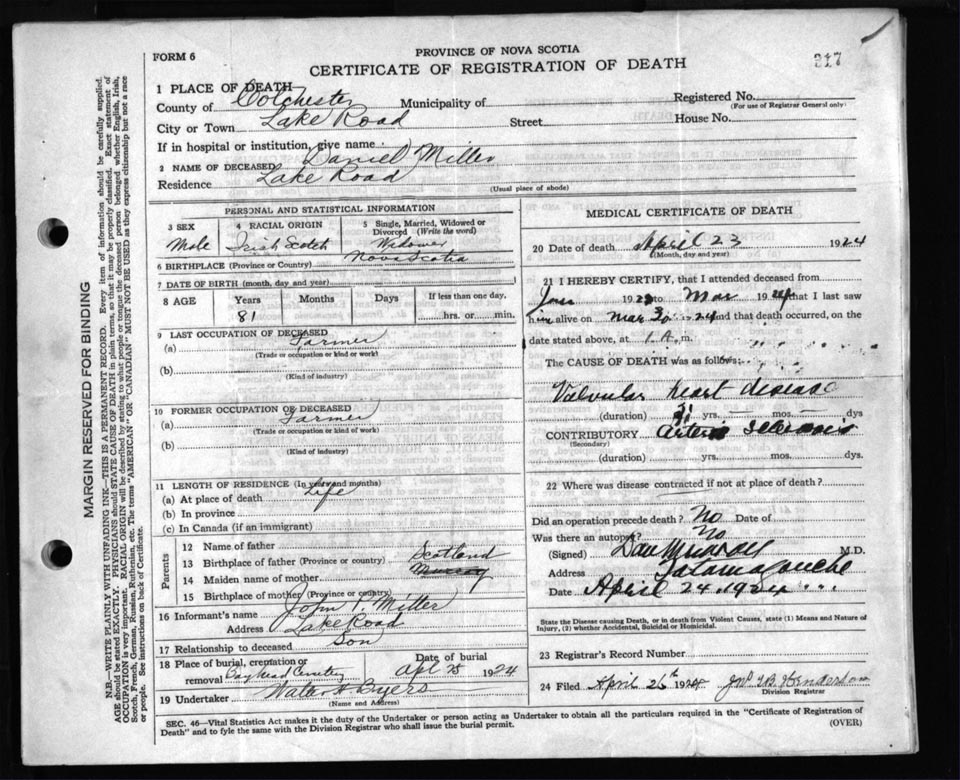 FORM 6
PROVINCE OF NOVA SCOTIA
317
CERTIFICATE OF REGISTRATION OF DEATH
1 PLACE OF DEATH
County of Colchester Municipality of Registered No.
(For use of Registrar General only)
City or Town Lake Road Street House No.
If in hospital or institution, give name
2 NAME OF DECEASED Daniel Miller
Residence Lake Road
(Usual place of abode)
PERSONAL AND STATISTICAL INFORMATION
3 SEX 4 RACIAL ORIGIN 5 Single, Married, Widowed or
Divorced (Write the word)
Male Irish Scotch Widower
6 BIRTHPLACE (Province or Country) Nova Scotia
7 DATE OF BIRTH (month, day and year)
8 AGE Years Months Days If less than one day,
81 hrs. or min.
9 LAST OCCUPATION OF DECEASED
(a) Farmer
(Trade or occupation or kind or work)
(b)
(Kind of industry)
10 FORMER OCCUPATION OF DECEASED
(a) Farmer
(Trade or occupation or kind of work)
(b)
(Kind of industry)
11 LENGTH OF RESIDENCE (In years and months)
(a) At place of death Life
(b) In province
(c) In Canada (if an immigrant)
Parents
12 Name of father
13 Birthplace of father (Province or country) Scotland
14 Maiden name of mother Murray
15 Birthplace of mother (Province or country)
16 Informant's name John T. Miller
Address Lake Road
17 Relationship to deceased Son
18 Place of burial, cremation or Date of burial
removal Bayhead Cemetery Apl 25 1924
19 Undertaker Walter A Byers
(Name and Address)
MEDICAL CERTIFICATE OF DEATH
20 Date of death April 23 1924
(Month, day and year)
21 I HEREBY CERTIFY, that I attended deceased from
192 to Mar 1924 that I last saw
him alive on Mar 30 24 and that death occurred, on the
date stated above, at 1 A. m.
The CAUSE OF DEATH was as follows:
Valvular heart disease
(duration) yrs. mos. dys
CONTRIBUTORY Arterio Sclerosis
(Secondary)
(duration) yrs. mos. dys.
22 Where was disease contracted if not at place of death?
Did an operation precede death? No Date of
Was there an autopsy? No
(Signed) Dan Murray M.D.
Address Tatamagouche
Date April 24, 1924
State the Disease causing Death, or in death from Violent Causes, state (1) Means and Nature of
Injury, (2) whether Accidental, Suicidal or Homicidal.
23 Registrar's Record Number
24 Filed April 26th 1924 Jno. B. Henderson
Division Registrar
SEC. 46—Vital Statistics Act makes it the duty of the Undertaker or person acting as Undertaker to obtain all the particulars required in the "Certificate of Registration of
Death" and to fyle the same with the Division Registrar who shall issue the burial permit. (OVER)
MARGIN RESERVED FOR BINDING
N.B.—WRITE PLAINLY WITH UNFADING INK—THIS IS A PERMANENT RECORD. Every item of information should be carefully supplied.
AGE should be stated EXACTLY. PHYSICIANS should STATE CAUSE OF DEATH in plain terms, so that it may be properly classified. Exact statement of
OCCUPATION is very important. RACIAL ORIGIN will be described by stating to what people or tongue the deceased person belonged whether English, Irish,
Scotch, French, German, Russian, Ruthenian, etc. The terms "AMERICAN" OR "CANADIAN" MUST NOT BE USED as they express citizenship but not a race
or people. See instructions on back of Certificate.